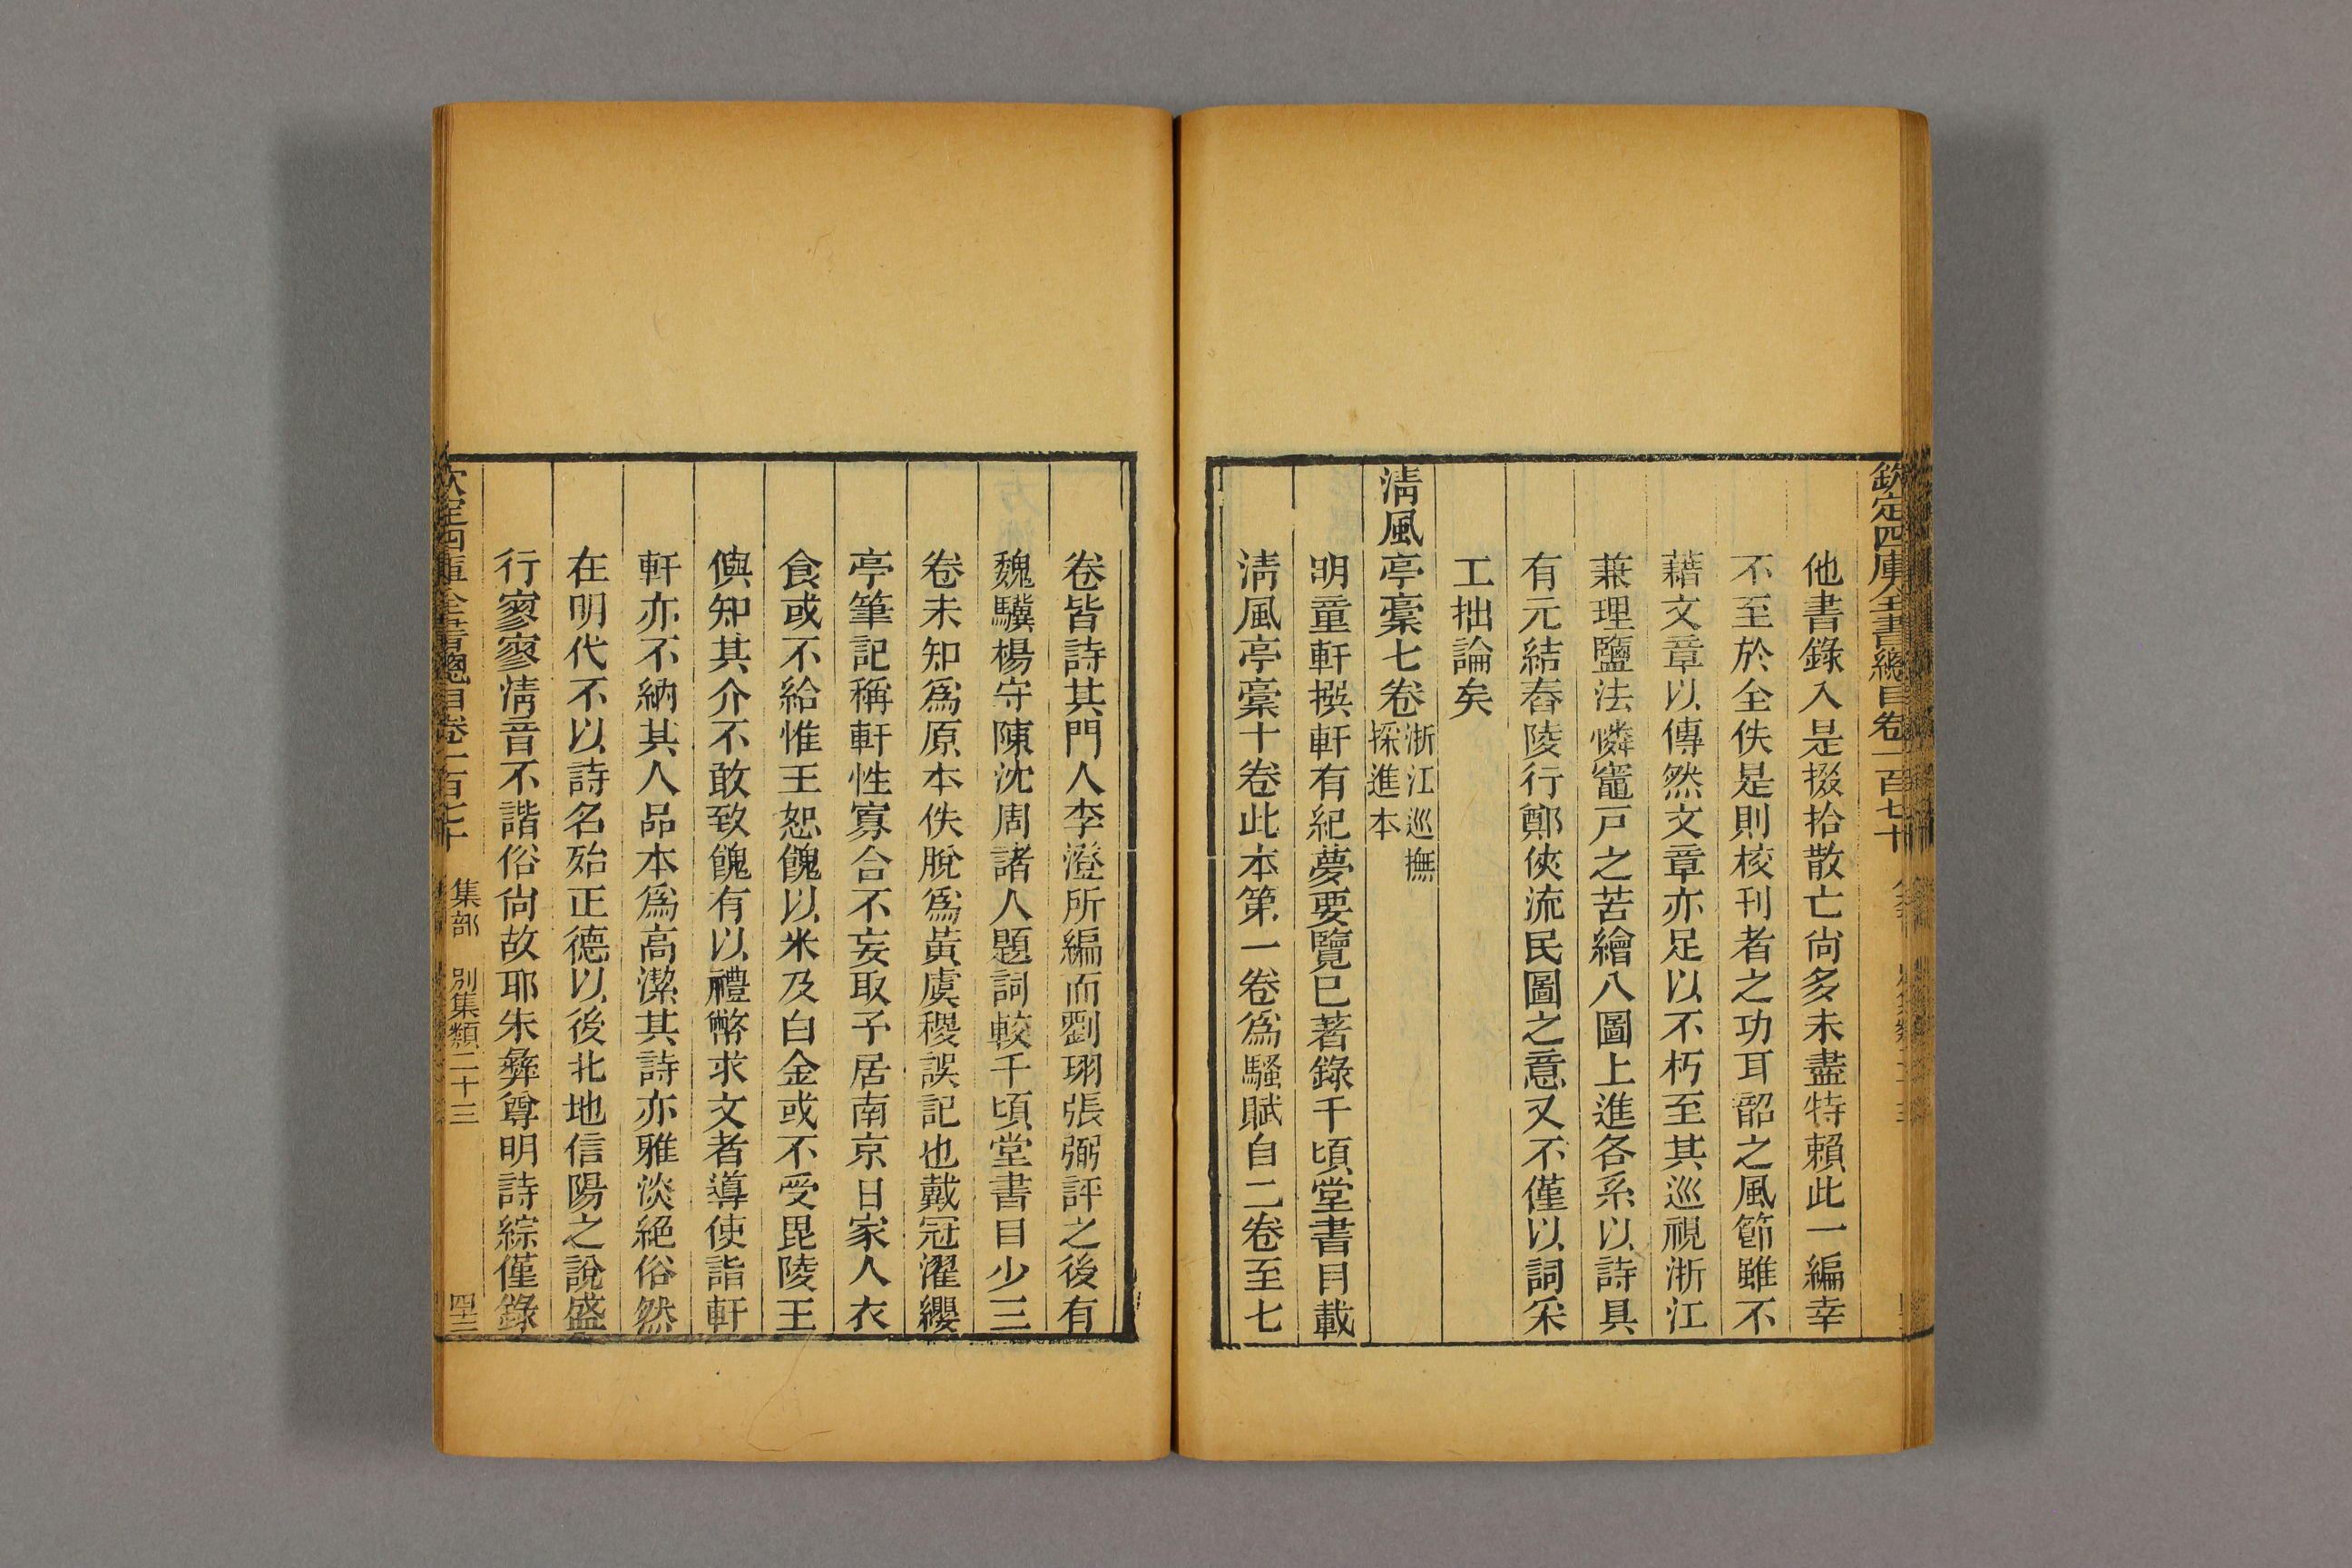 欽定四庫全書總目卷一百七十
他書錄入是掇拾散亡尚多未盡特賴此一編幸
不至於全佚是則校刊者之功耳韶之風節雖不
藉文章以傳然文章亦足以不朽至其巡視浙江
兼理鹽法憐竈戸之苦繪八圖上進各系以詩具
有元結舂陵行鄭俠流民圖之意又不僅以詞采
工拙論矣
淸風亭稾七卷浙江巡撫
採進本
明童軒撰軒有紀夢要覽已著錄千頃堂書目載
淸風亭稾十卷此本第一卷為騷賦自二卷至七
卷皆詩其門人李澄所編而劉珝張弼評之後有
魏驥楊守陳沈周諸人題詞較千頃堂書目少三
卷未知為原本佚脫為黃虞稷誤記也戴冠濯纓
亭筆記稱軒性寡合不妄取予居南京日家人衣
食或不給惟王恕餽以米及白金或不受毘陵王
㒜知其介不敢致餽有以禮幣求文者導使詣軒
軒亦不納其人品本為高潔其詩亦雅淡絕俗然
在明代不以詩名殆正德以後北地信陽之說盛
行寥寥淸音不諧俗尚故耶朱彝尊明詩綜僅錄
欽定四庫全書總目卷一百七十 集部 別集類二十三 四十三